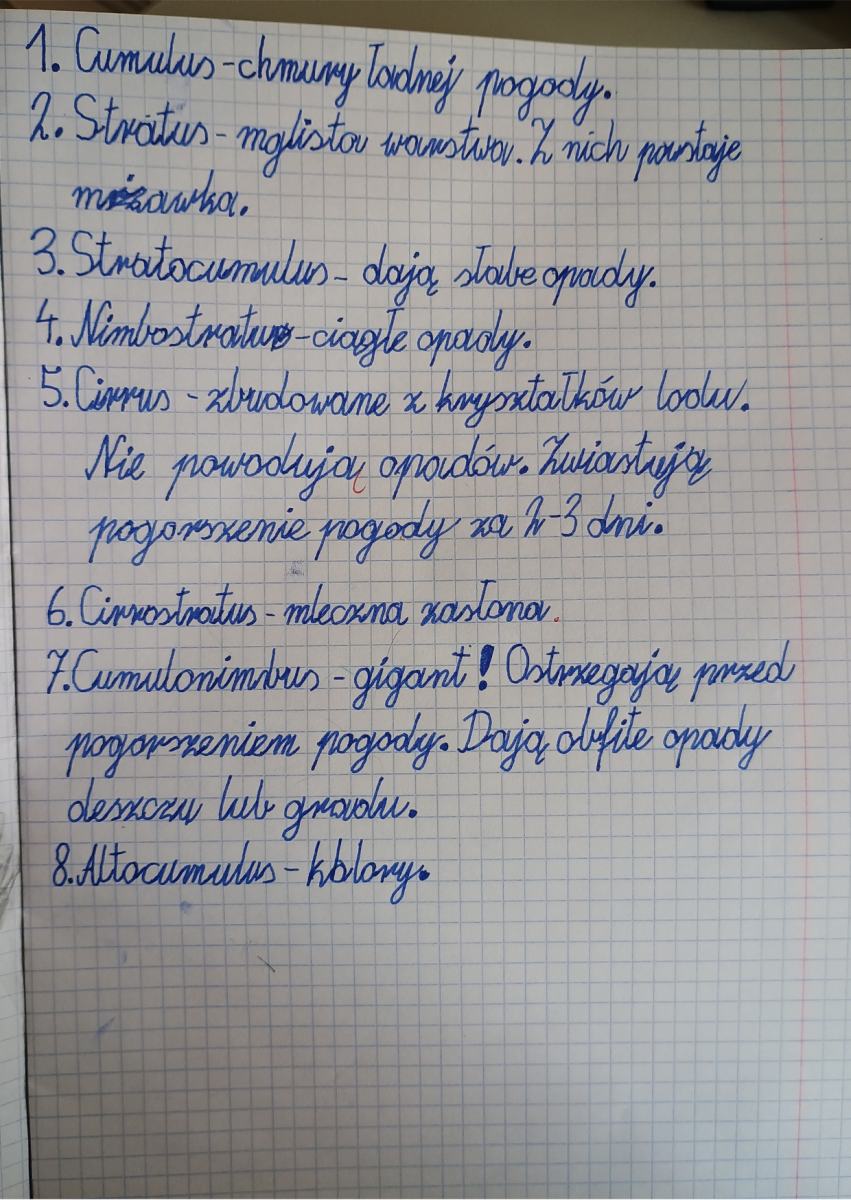 1. Cumulus - chmury ładnej pogody.
2. Stratus - mglista warstwa. Z nich powstaje
mżawka.
3. Stratocumulus - dają słabe opady.
4. Nimbostratus - ciągłe opady.
5. Cirrus - zbudowane z kryształków lodu.
Nie powodują opadów. Zwiastują
pogorszenie pogody za 2-3 dni.
6. Cirrostratus - mleczna zasłona.
7. Cumulonimbus - gigant! Ostrzegają przed
pogorszeniem pogody. Dają obfite opady
deszczu lub gradu.
8. Altocumulus -